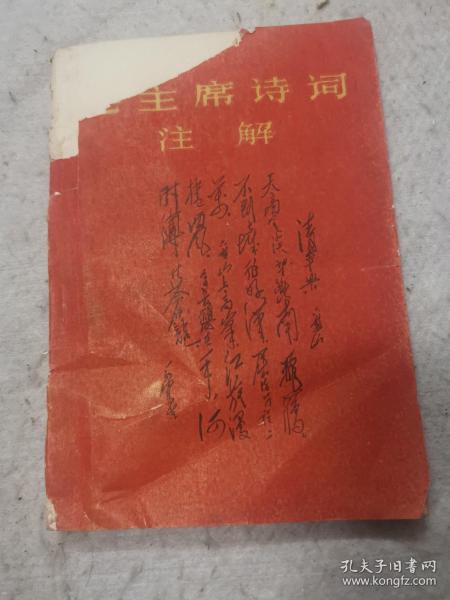 主席诗词
注解
清平乐 六盘山
天高云淡望断南飞雁
不到长城非好汉屈指行程二
万六盘山上高峰红旗漫
卷西风今日长缨在手何
时缚住苍龙
孔夫子旧书网
www.kongfz.com